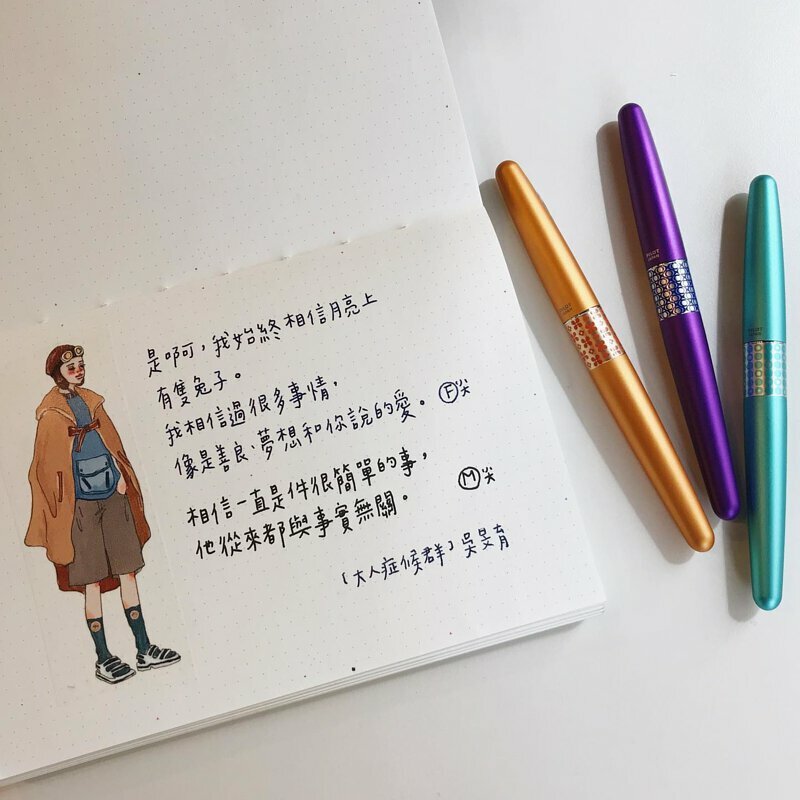 是啊,我始終相信月亮上
有隻兔子。
我相信過很多事情,
像是善良、夢想和你說的愛。 Ⓕ尖
相信一直是件很簡單的事,
他從來都與事實無關。 Ⓜ尖
「大人症候群」吳旻育
PILOT
JAPAN
PILOT
JAPAN
PILOT
JAPAN